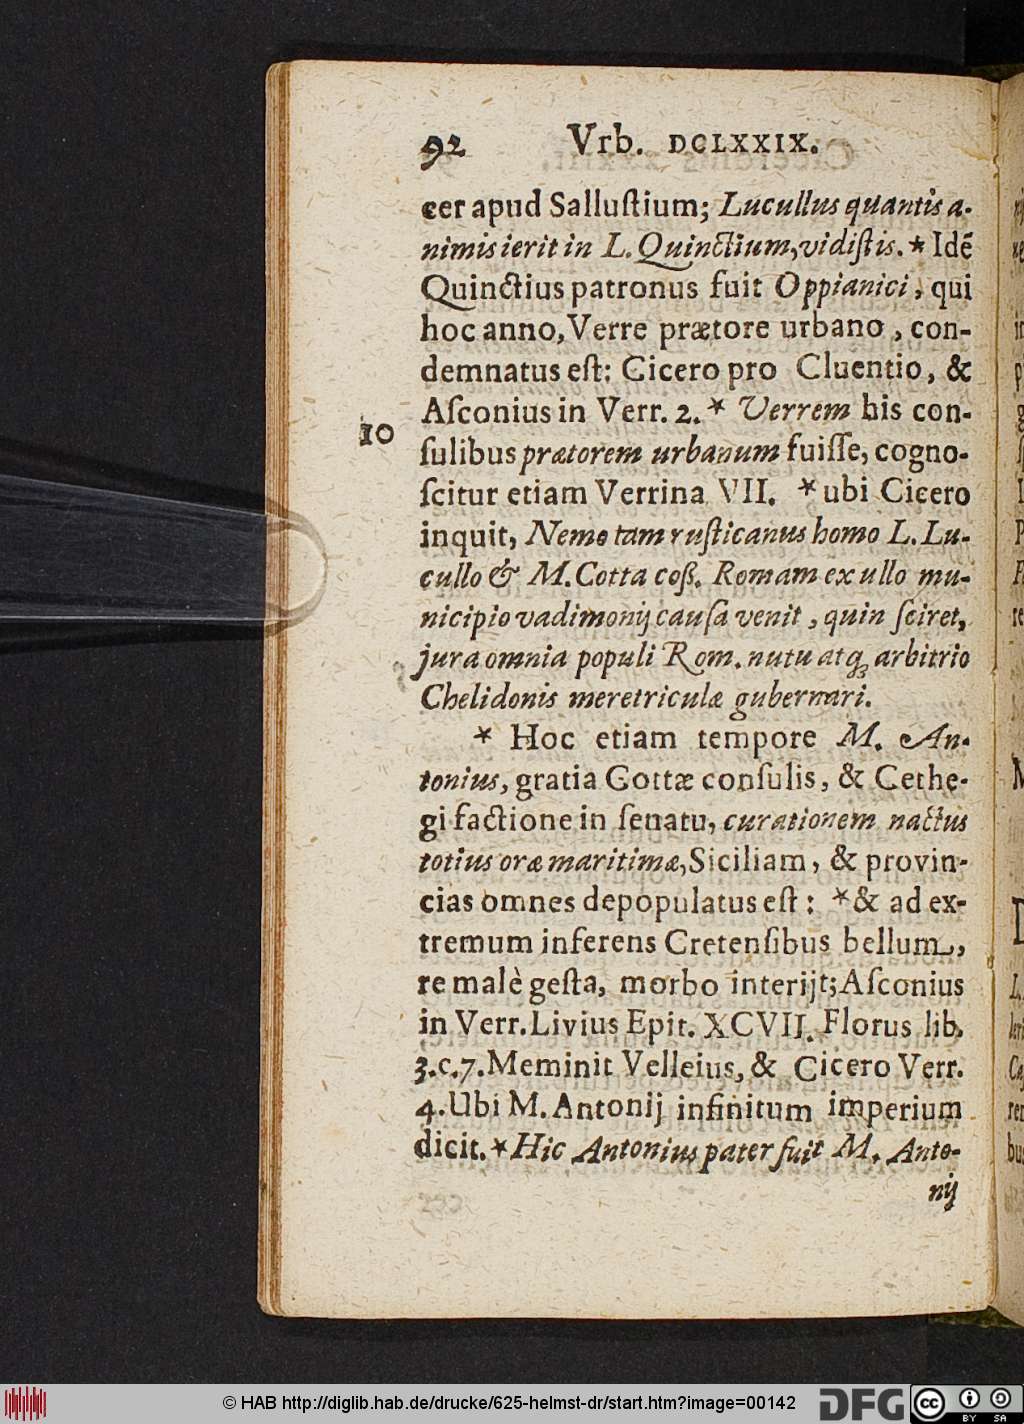 92 Vrb. DCLXXIX.
cer apud Salluſtium; Lucullus quantis a-
nimis ierit in L. Quinctium, vidiſtis. * Idẽ
Quinctius patronus fuit Oppianici, qui
hoc anno, Verre prætore urbano, con-
demnatus eſt: Cicero pro Cluentio, &
Aſconius in Verr. 2. * Verrem his con-
10
ſulibus prætorem urbanum fuiſſe, cogno-
ſcitur etiam Verrina VII. * ubi Cicero
inquit, Nemo tam ruſticanus homo L. Lu-
cullo & M. Cotta coß. Romam ex ullo mu-
nicipio vadimonij cauſa venit, quin ſciret,
jura omnia populi Rom. nutu atq; arbitrio
Chelidonis meretriculæ gubernari.
* Hoc etiam tempore M. An-
tonius, gratia Cottæ conſulis, & Cethe-
gi factione in ſenatu, curationem nactus
totius oræ maritimæ, Siciliam, & provin-
cias omnes depopulatus eſt: * & ad ex-
tremum inferens Cretenſibus bellum,
re malè geſta, morbo interijt; Aſconius
in Verr. Livius Epit. XCVII. Florus lib.
3. c. 7. Meminit Velleius, & Cicero Verr.
4. Ubi M. Antonij infinitum imperium
dicit. * Hic Antonius pater fuit M. Anto-
nij
© HAB http://diglib.hab.de/drucke/625-helmst-dr/start.htm?image=00142
DFG
cc
BY SA